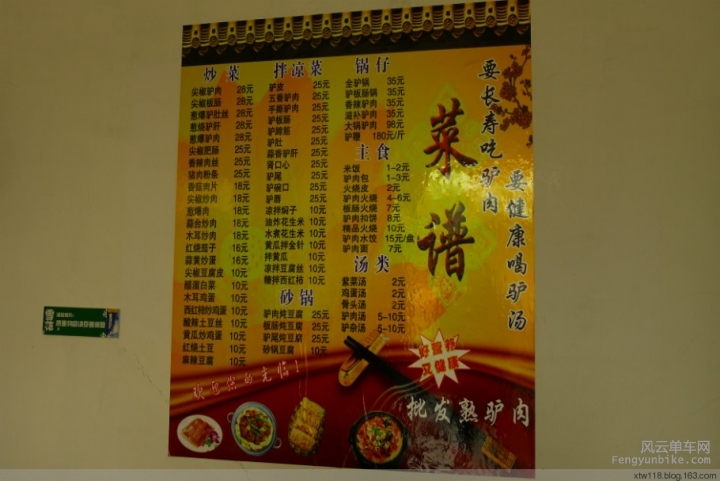 炒菜
尖椒驴肉 28元
尖椒板肠 28元
葱爆驴肚丝 28元
葱烧驴肝 28元
葱爆驴肉 28元
尖椒肥肠 25元
香辣肉丝 25元
猪肉粉条 25元
香菇肉片 18元
尖椒炒肉 18元
葱爆肉 18元
蒜台炒肉 18元
木耳炒肉 18元
红烧茄子 16元
蒜黄炒蛋 16元
尖椒豆腐皮 10元
醋溜白菜 10元
木耳鸡蛋 10元
西红柿炒鸡蛋 10元
酸辣土豆丝 10元
黄瓜炒鸡蛋 10元
红烧土豆 10元
麻辣豆腐 10元
拌凉菜
驴皮 25元
五香驴肉 25元
手撕驴肉 25元
驴板肠 25元
驴蹄筋 25元
驴肚 25元
蒜香驴肝 25元
肾口心 25元
驴尾 25元
驴碗口 25元
驴唇 25元
凉拌焖子 10元
油炸花生米 10元
水煮花生米 10元
黄瓜拌金针 10元
拌黄瓜 10元
凉拌豆腐丝 10元
糖拌西红柿 10元
砂锅
驴肉炖豆腐 25元
驴肠炖豆腐 25元
驴尾炖豆腐 25元
砂锅豆腐 10元
锅仔
全驴锅 35元
驴板肠锅 35元
香辣驴肉 35元
滋补驴肉 35元
大锅驴肉 98元
驴鞭 180元/斤
主食
米饭 1-2元
驴肉包 1-3元
火烧皮 2元
驴肉火烧 4-6元
板肠火烧 7元
驴肉扣饼 8元
精品火烧 10元
驴肉水饺 15元/盘
驴肉面 7元
汤类
紫菜汤 2元
鸡蛋汤 2元
骨头汤 2元
驴肉汤 5-10元
驴杂汤 5-10元
菜谱
要长寿吃驴肉
要健康喝驴汤
又健康
欢迎您的光临!
批发熟驴肉
风云单车网
Fengyunbike.com
xtw118.blog.163.com